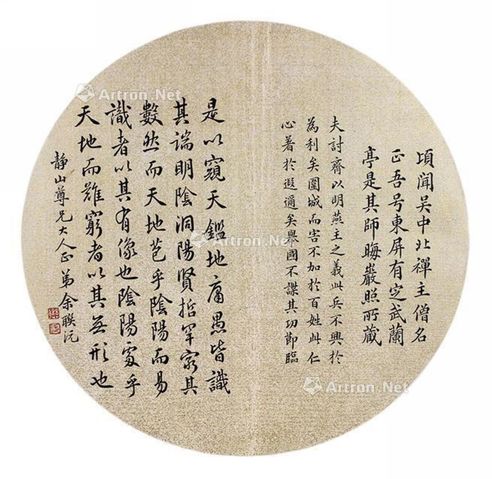 頃聞吴中北禪主僧名
正吾号東屏有定武蘭
亭是其師晦巖照所藏
夫討齊以明燕主之義此兵不興於
為利矣圍城而害不加於百姓此仁
心著於遐邇矣舉國不謀其功節臨
是以窺天鑑地庸愚皆識
其端明陰洞陽賢哲罕窮其
數然而天地苞乎陰陽而易
識者以其有像也陰陽處乎
天地而難窮者以其無形也
靜山尊兄大人正弟余聯沅
Artron.Net
Artron.Net
Artron.Net
Artron.Net